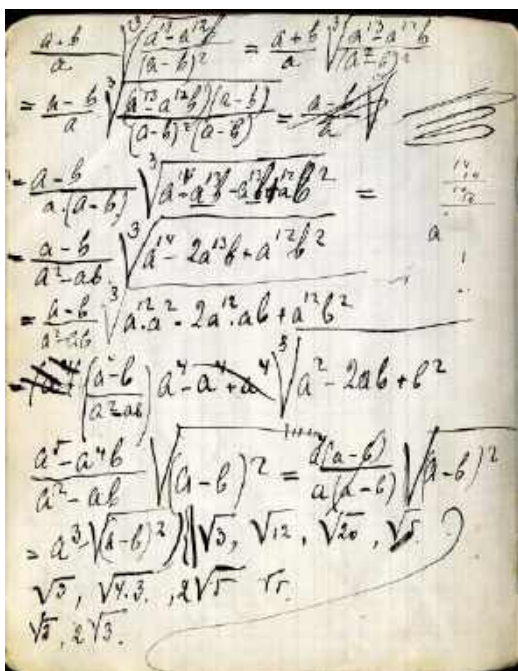 a+b/a ∛(a¹³-a¹²b/(a-b)²) = a+b/a ∛(a¹³-a¹²b/(a-b)²)
= a-b/a ∛((a¹³-a¹²b)(a-b)/(a-b)²(a-b)) = a-b/a √
= a-b/a(a-b) ∛(a¹⁴-a¹³b-a¹³b+a¹²b²) =
= a-b/a²-ab ∛(a¹⁴-2a¹³b+a¹²b²)
a
= a-b/a²-ab ∛(a¹²·a²-2a¹²·ab+a¹²b²)
= (a-b/a²-ab) a⁴-a⁴+a⁴ ∛(a²-2ab+b²)
a⁵-a⁴b/a²-ab √(a-b)² = a(a-b)/a(a-b) √(a-b)²
= a³-√(a-b)² √3, √12, √20, √5.
√3, √4·3, 2√5 √5.
√3, 2√3.